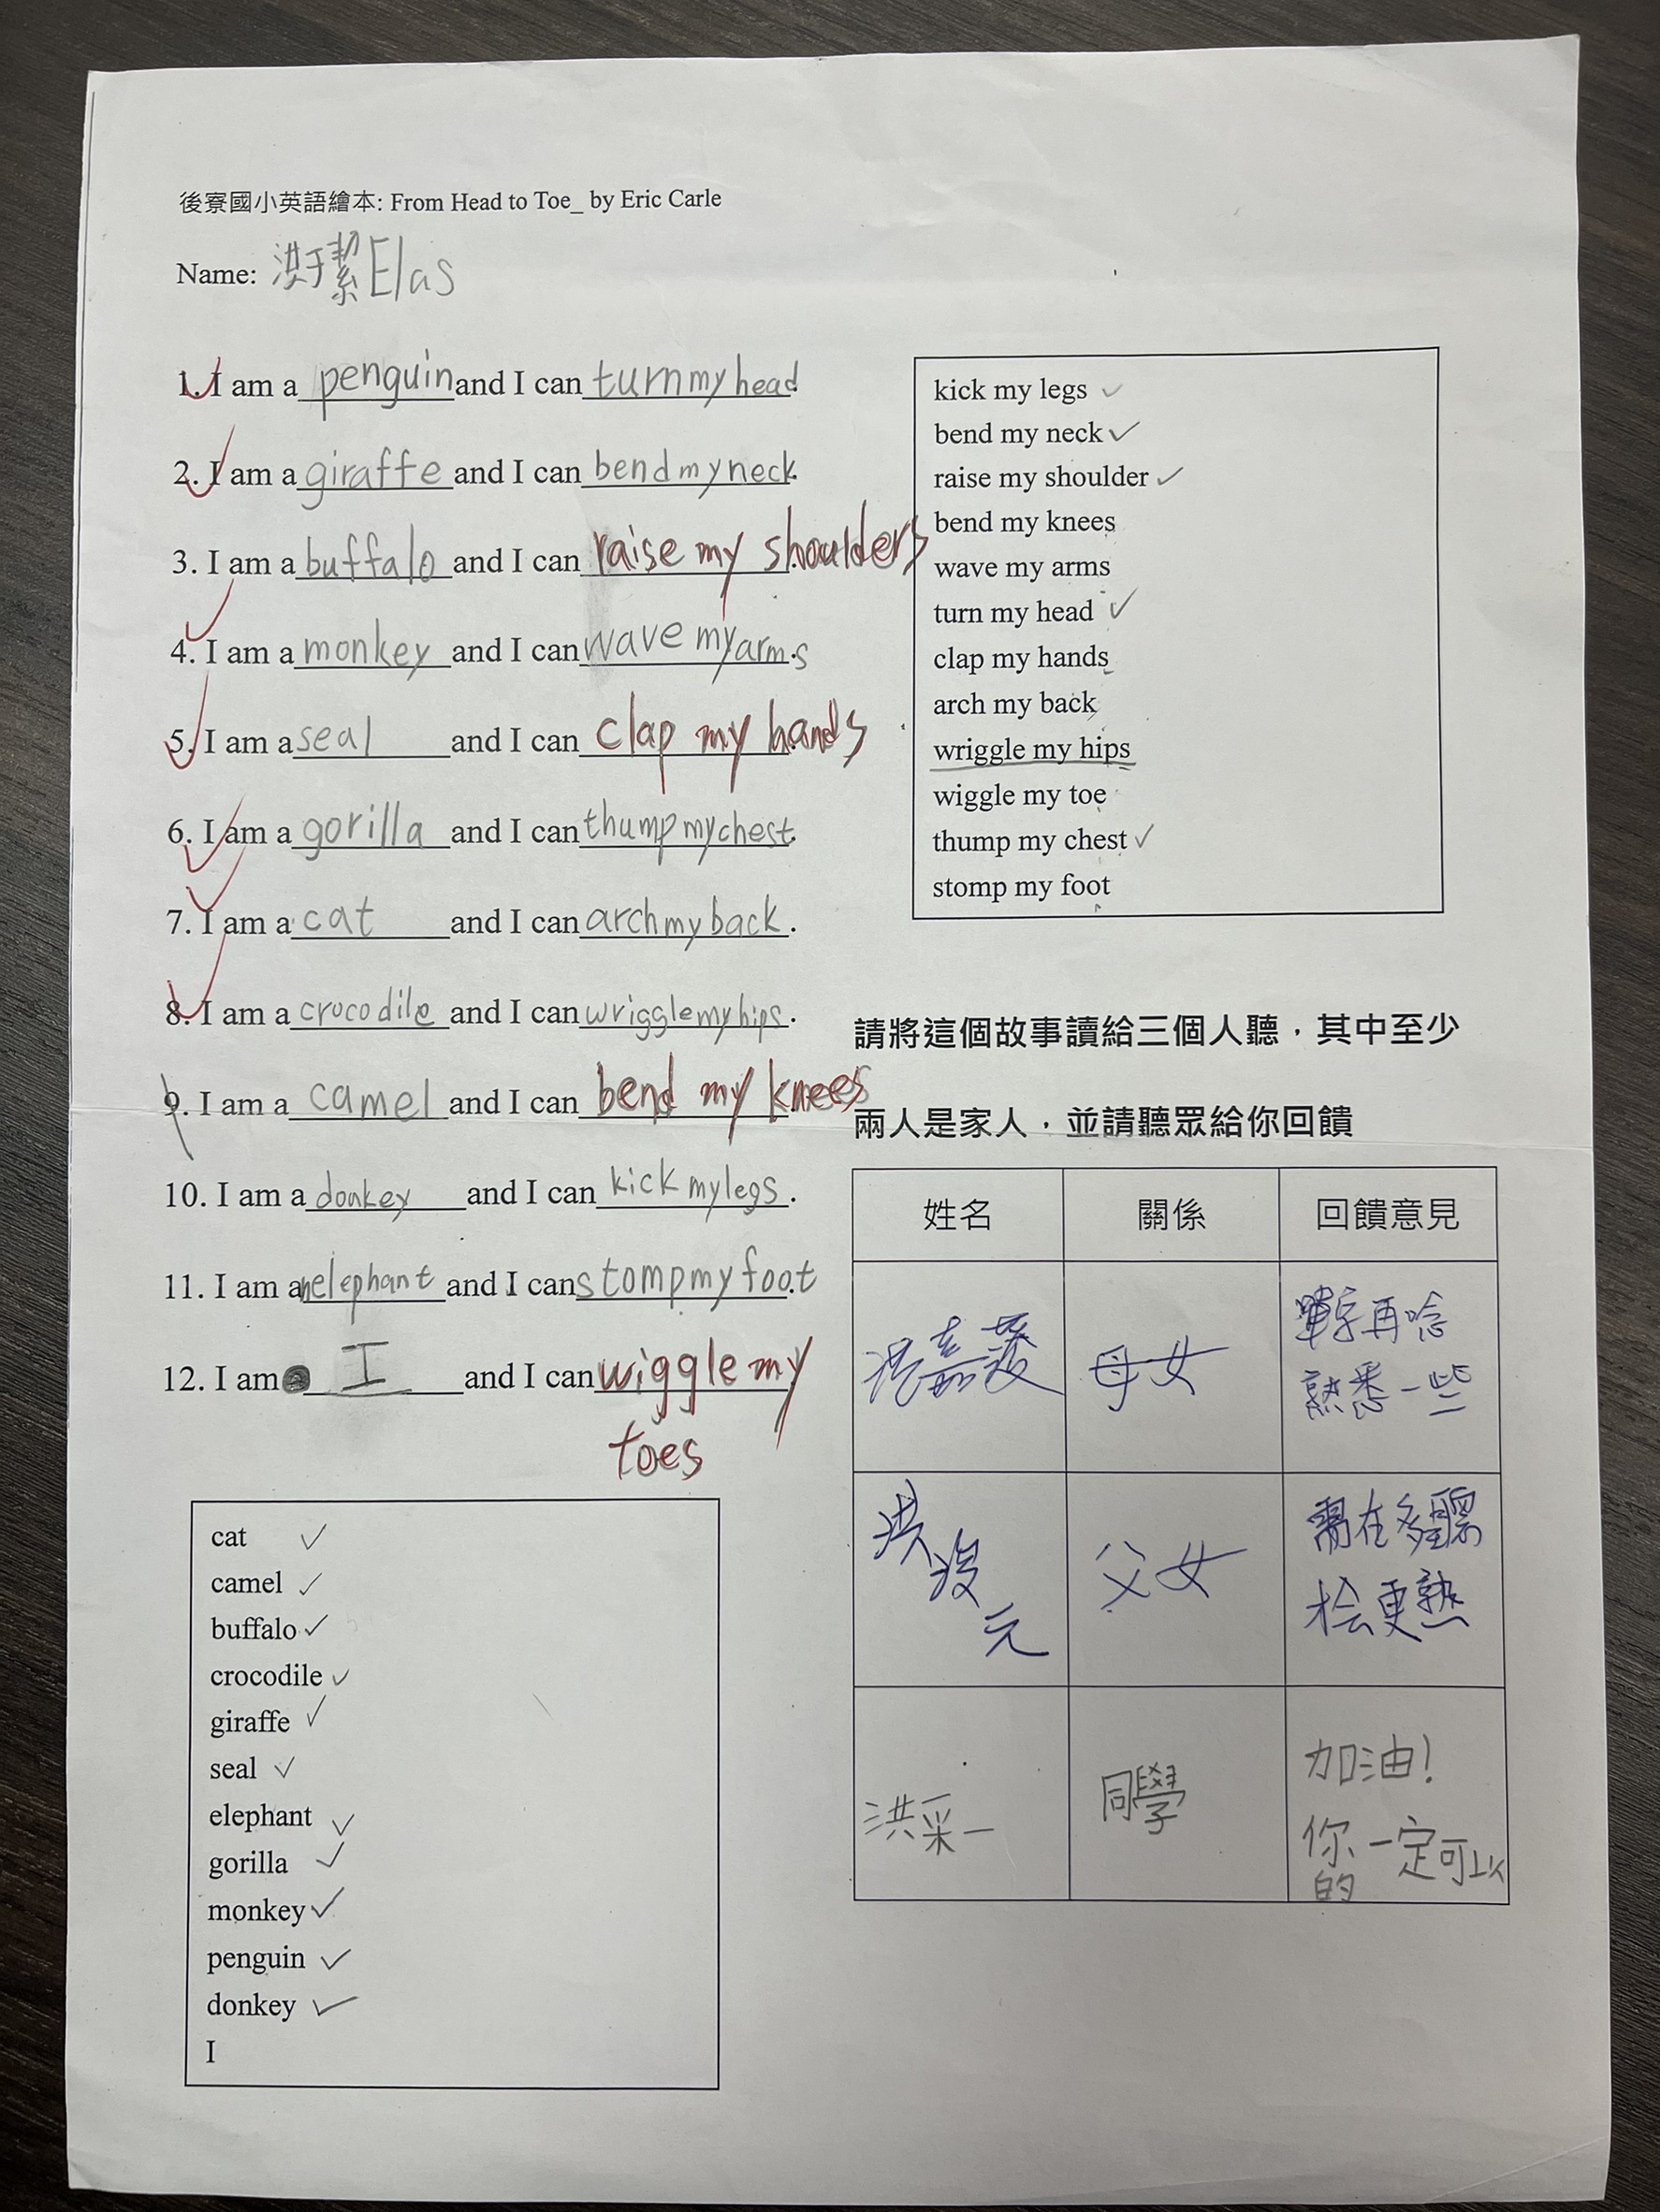 後寮國小英語繪本: From Head to Toe_ by Eric Carle
Name: 洪于絜 Elas
1. I am a penguin and I can turn my head.
2. I am a giraffe and I can bend my neck.
3. I am a buffalo and I can raise my shoulders.
4. I am a monkey and I can wave my arms.
5. I am a seal and I can clap my hands.
6. I am a gorilla and I can thump my chest.
7. I am a cat and I can arch my back.
8. I am a crocodile and I can wriggle my hips.
9. I am a camel and I can bend my knees.
10. I am a donkey and I can kick my legs.
11. I am an elephant and I can stomp my foot.
12. I am I and I can wiggle my
toes
kick my legs
bend my neck
raise my shoulder
bend my knees
wave my arms
turn my head
clap my hands
arch my back
wriggle my hips
wiggle my toe
thump my chest
stomp my foot
請將這個故事讀給三個人聽，其中至少
兩人是家人，並請聽眾給你回饋
姓名 關係 回饋意見
洪嘉 母女 單字再唸
熟悉一些
洪 元 父女 需在多聽
更熟
洪采一 同學 加油!
你一定可以
的
cat
camel
buffalo
crocodile
giraffe
seal
elephant
gorilla
monkey
penguin
donkey
I